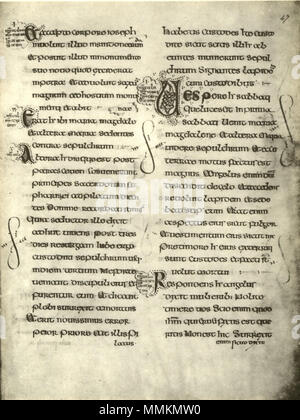 47
Et accepto corpore ioseph
inuoluit illud in
et posuit illud in monumento
suo nouo quod
in petra et aduoluit saxum
magnum ad hostium monu
menti et abiit
Erat h ibi maria magdale
et altera maria sedentes
contra sepulchrum
Altera h die quae est post
parasceuen conuenerunt
principes sacerdotum et
pharisaei ad pilatum
Domine recordati
quia seductor ille dixit
adhuc uiuens post tres
dies resurgam iube ergo
custodiri sepulchrum us
in diem tertium ne forte
discipuli eius et
furentur eum et dicant
plebi surrexit a mortuis
et erit nouissimus error
peior priore ait illis pi
latus
habetis custodes ite custo
dite sicut scitis illi h ab
euntes munierunt sepul
chrum signantes lapidem
cum custodibus
Uespere h sabbati
quae lucescit in prima
sabbati uenit maria
magdalene et altera maria
uidere sepulchrum et ecce
terrae motus factus est
magnus angelus enim dni
descendit de caelo et accedens
reuoluit lapidem et sede
bat super eum erat enim
aspectus eius sicut fulgor
et uestimentum eius sicut nix
Prae timore h eius exterriti
sunt custodes et facti st
uelut mortui
Respondens h angelus
dixit mulieribus nolite
timere uos scio enim quod
ihm qui est quae
ritis non est hic surrexit
enim sicut dixit